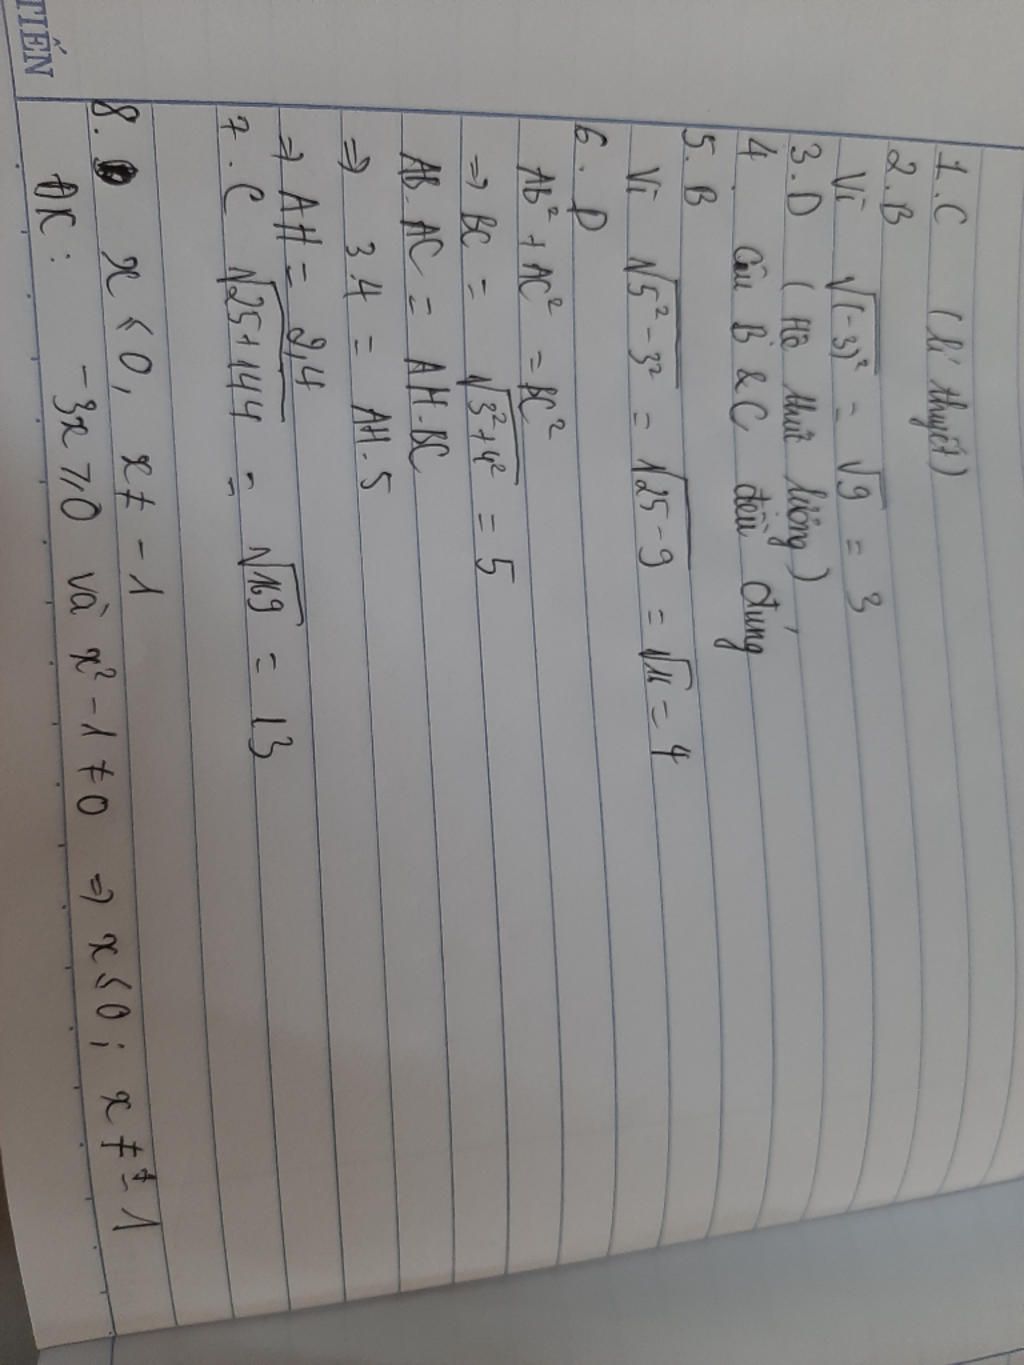 TIẾN
1. C (lí thuyết)
2. B
Vì √(-3)² = √9 = 3
3. D (Hệ thức lượng)
4. Câu B & C đều đúng
5. B
Vì √5² - 3² = √25 - 9 = √16 = 4
6. D
AB² + AC² = BC²
⇒ BC = √3² + 4² = 5
AB. AC = AH. BC
⇒ 3.4 = AH. 5
⇒ AH = 2,4
7. C √25 + 144 = √169 = 13
8. x ≤ 0, x ≠ - 1
ĐK: - 3x ≥ 0 và x² - 1 ≠ 0 ⇒ x ≤ 0; x ≠ - 1